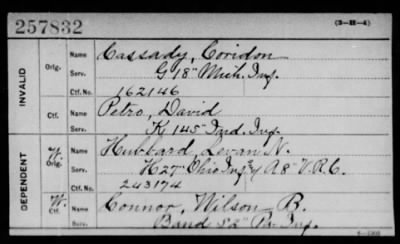 257832
(3-H-4)
INVALID
Orig.
Name Cassady, Coridon
Serv. G 18" Mich. Inf.
Ctf. No. 162146
Ctf.
Name Petro, David
Serv. K 145 Ind. Inf.
DEPENDENT
W. Orig.
Name Hubbard, Levan N.
Serv. K 27 Ohio Inf & A 8" V.R.C.
Ctf. No. 243174
W. Ctf.
Name Connor, Wilson B.
Serv. Band 52" Pa. Inf.